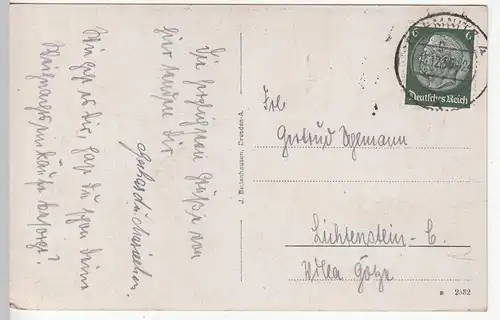 Die herzlichsten Grüße von
hier senden Dir
Wie geht es Dir, hast Du schon Deine
Weihnachtseinkäufe besorgt?
J. Bettenhausen, Dresden-A.
6 6
Deutsches Reich
Frl
Gertrud
Lichtenstein-C.
Villa Götze
2532